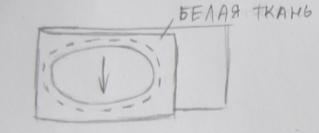 БЕЛАЯ ТКАНЬ